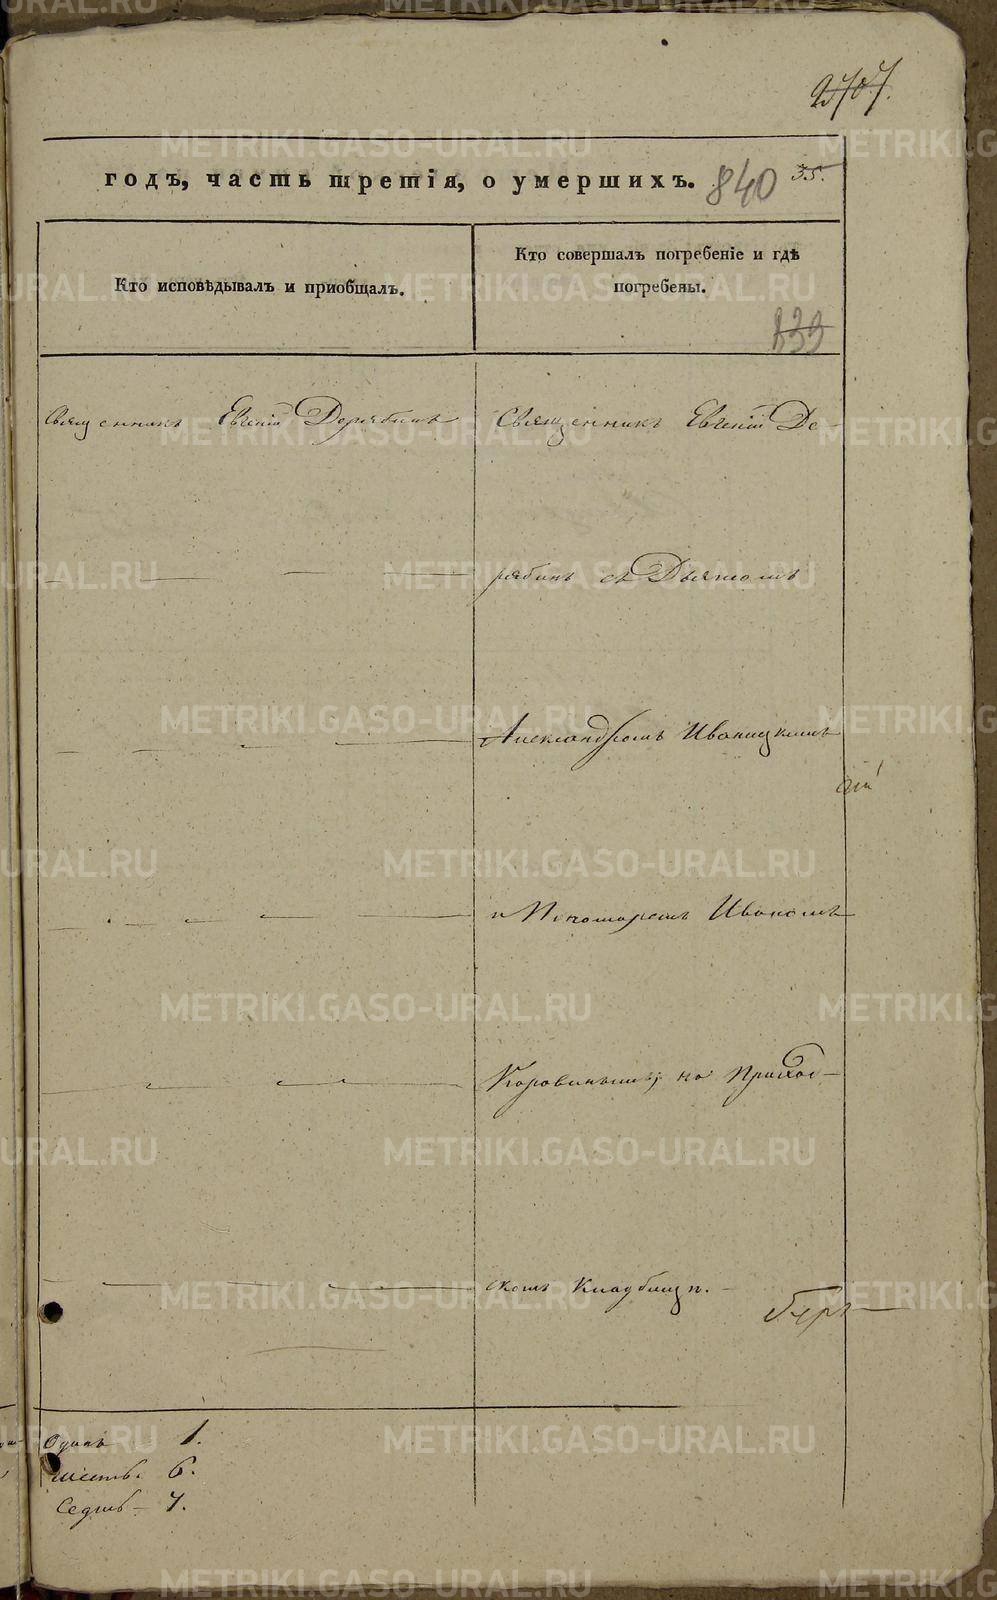 годъ, часть третія, о умершихъ. 840 35.
Кто исповѣдывалъ и пріобщалъ.
Кто совершалъ погребеніе и гдѣ
погребены.
839
Священникъ Евгеній Дерябинъ
Священникъ Евгеній Де-
рябинъ съ Дьякомъ
Александромъ Иваницкимъ
и Пономаремъ Иваномъ
Коровинымъ; на Приход-
скомъ Кладбищѣ.
Одинъ 1.
Шесть. 6.
Седмь - 7.
METRIKI.GASO-URAL.RU